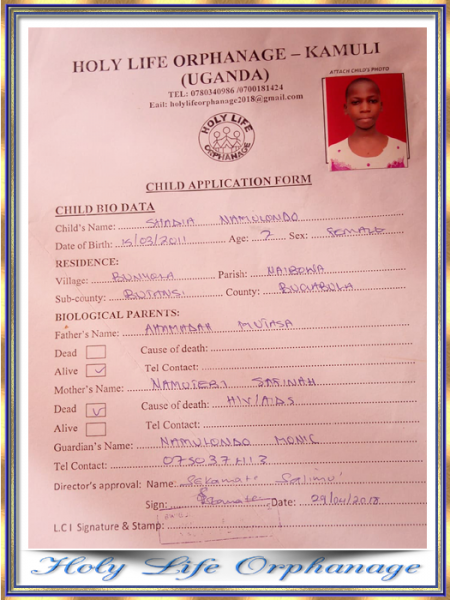 HOLY LIFE ORPHANAGE – KAMULI
(UGANDA)
TEL: 0780340986 /0700181424
Eail: holylifeorphanage2018@gmail.com
ATTACH CHILD'S PHOTO
HOLY LIFE
ORPHANAGE
CHILD APPLICATION FORM
CHILD BIO DATA
Child's Name: SHADIA NAMULONDO
Date of Birth: 15/03/2011 Age: 7 Sex: FEMALE
RESIDENCE:
Village: Parish: NAIBOWA
Sub-county: BUTANSI County: BUGABULA
BIOLOGICAL PARENTS:
Father's Name: AHAMADAH MUTASA
Dead Cause of death:
Alive Tel Contact:
Mother's Name: SAFINAH
Dead Cause of death: HIV/AIDS
Alive Tel Contact:
Guardian's Name: NAMULONDO MONIC
Tel Contact:
Director's approval: Name:
Sign: Date: 29/04/2018
L.C I Signature & Stamp:
Holy Life Orphanage